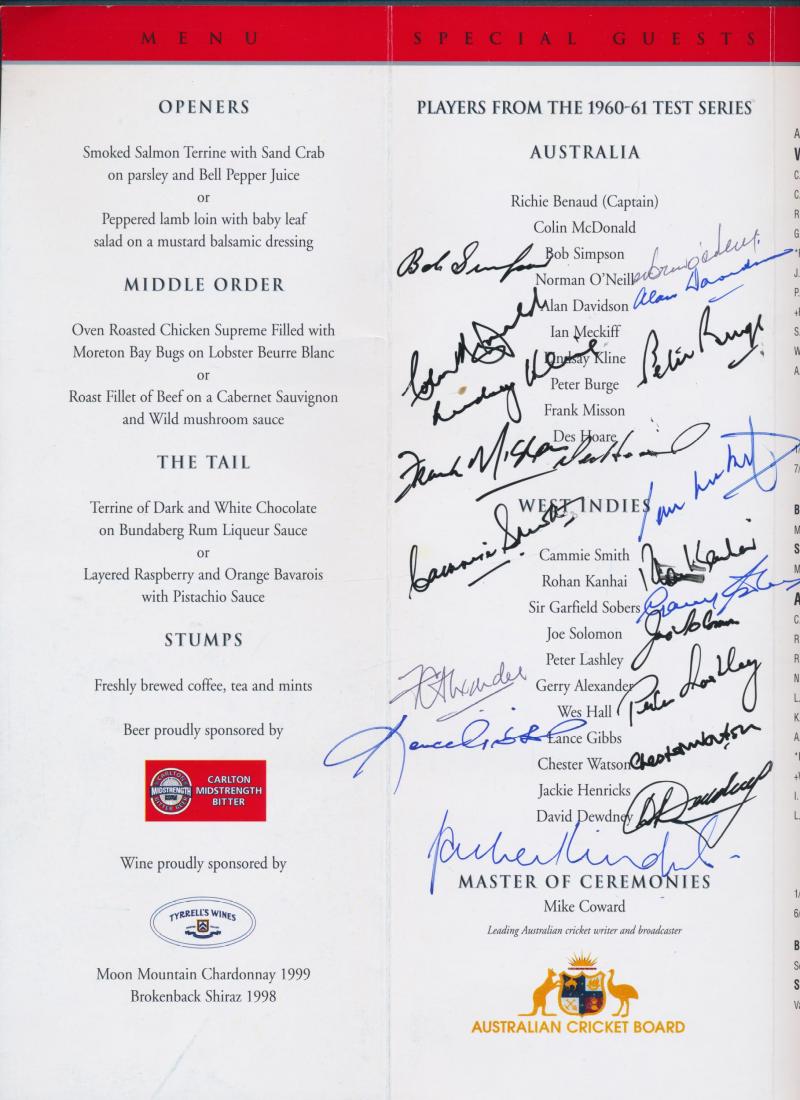 MENU
OPENERS
Smoked Salmon Terrine with Sand Crab
on parsley and Bell Pepper Juice
or
Peppered lamb loin with baby leaf
salad on a mustard balsamic dressing
MIDDLE ORDER
Oven Roasted Chicken Supreme Filled with
Moreton Bay Bugs on Lobster Beurre Blanc
or
Roast Fillet of Beef on a Cabernet Sauvignon
and Wild mushroom sauce
THE TAIL
Terrine of Dark and White Chocolate
on Bundaberg Rum Liqueur Sauce
or
Layered Raspberry and Orange Bavarois
with Pistachio Sauce
STUMPS
Freshly brewed coffee, tea and mints
Beer proudly sponsored by
CARLTON
MIDSTRENGTH
BITTER
CARLTON
MIDSTRENGTH
BITTER
Wine proudly sponsored by
TYRRELL'S WINES
Moon Mountain Chardonnay 1999
Brokenback Shiraz 1998
SPECIAL GUESTS
PLAYERS FROM THE 1960-61 TEST SERIES
AUSTRALIA
Richie Benaud (Captain)
Colin McDonald
Bob Simpson
Bob Simpson
Norman O'Neill
Alan Davidson
Alan Davidson
Ian Meckiff
Colin McDonald
Lindsay Kline
Lindsay Kline
Peter Burge
Peter Burge
Frank Misson
Des Hoare
Frank Misson
Des Hoare
WEST INDIES
Cammie Smith
Cammie Smith
Rohan Kanhai
Rohan Kanhai
Sir Garfield Sobers
Joe Solomon
Joe Solomon
Peter Lashley
Peter Lashley
Gerry Alexander
Wes Hall
Lance Gibbs
Lance Gibbs
Chester Watson
Chester Watson
Jackie Henricks
David Dewdney
D Dewdney
MASTER OF CEREMONIES
Mike Coward
Leading Australian cricket writer and broadcaster
AUSTRALIAN CRICKET BOARD